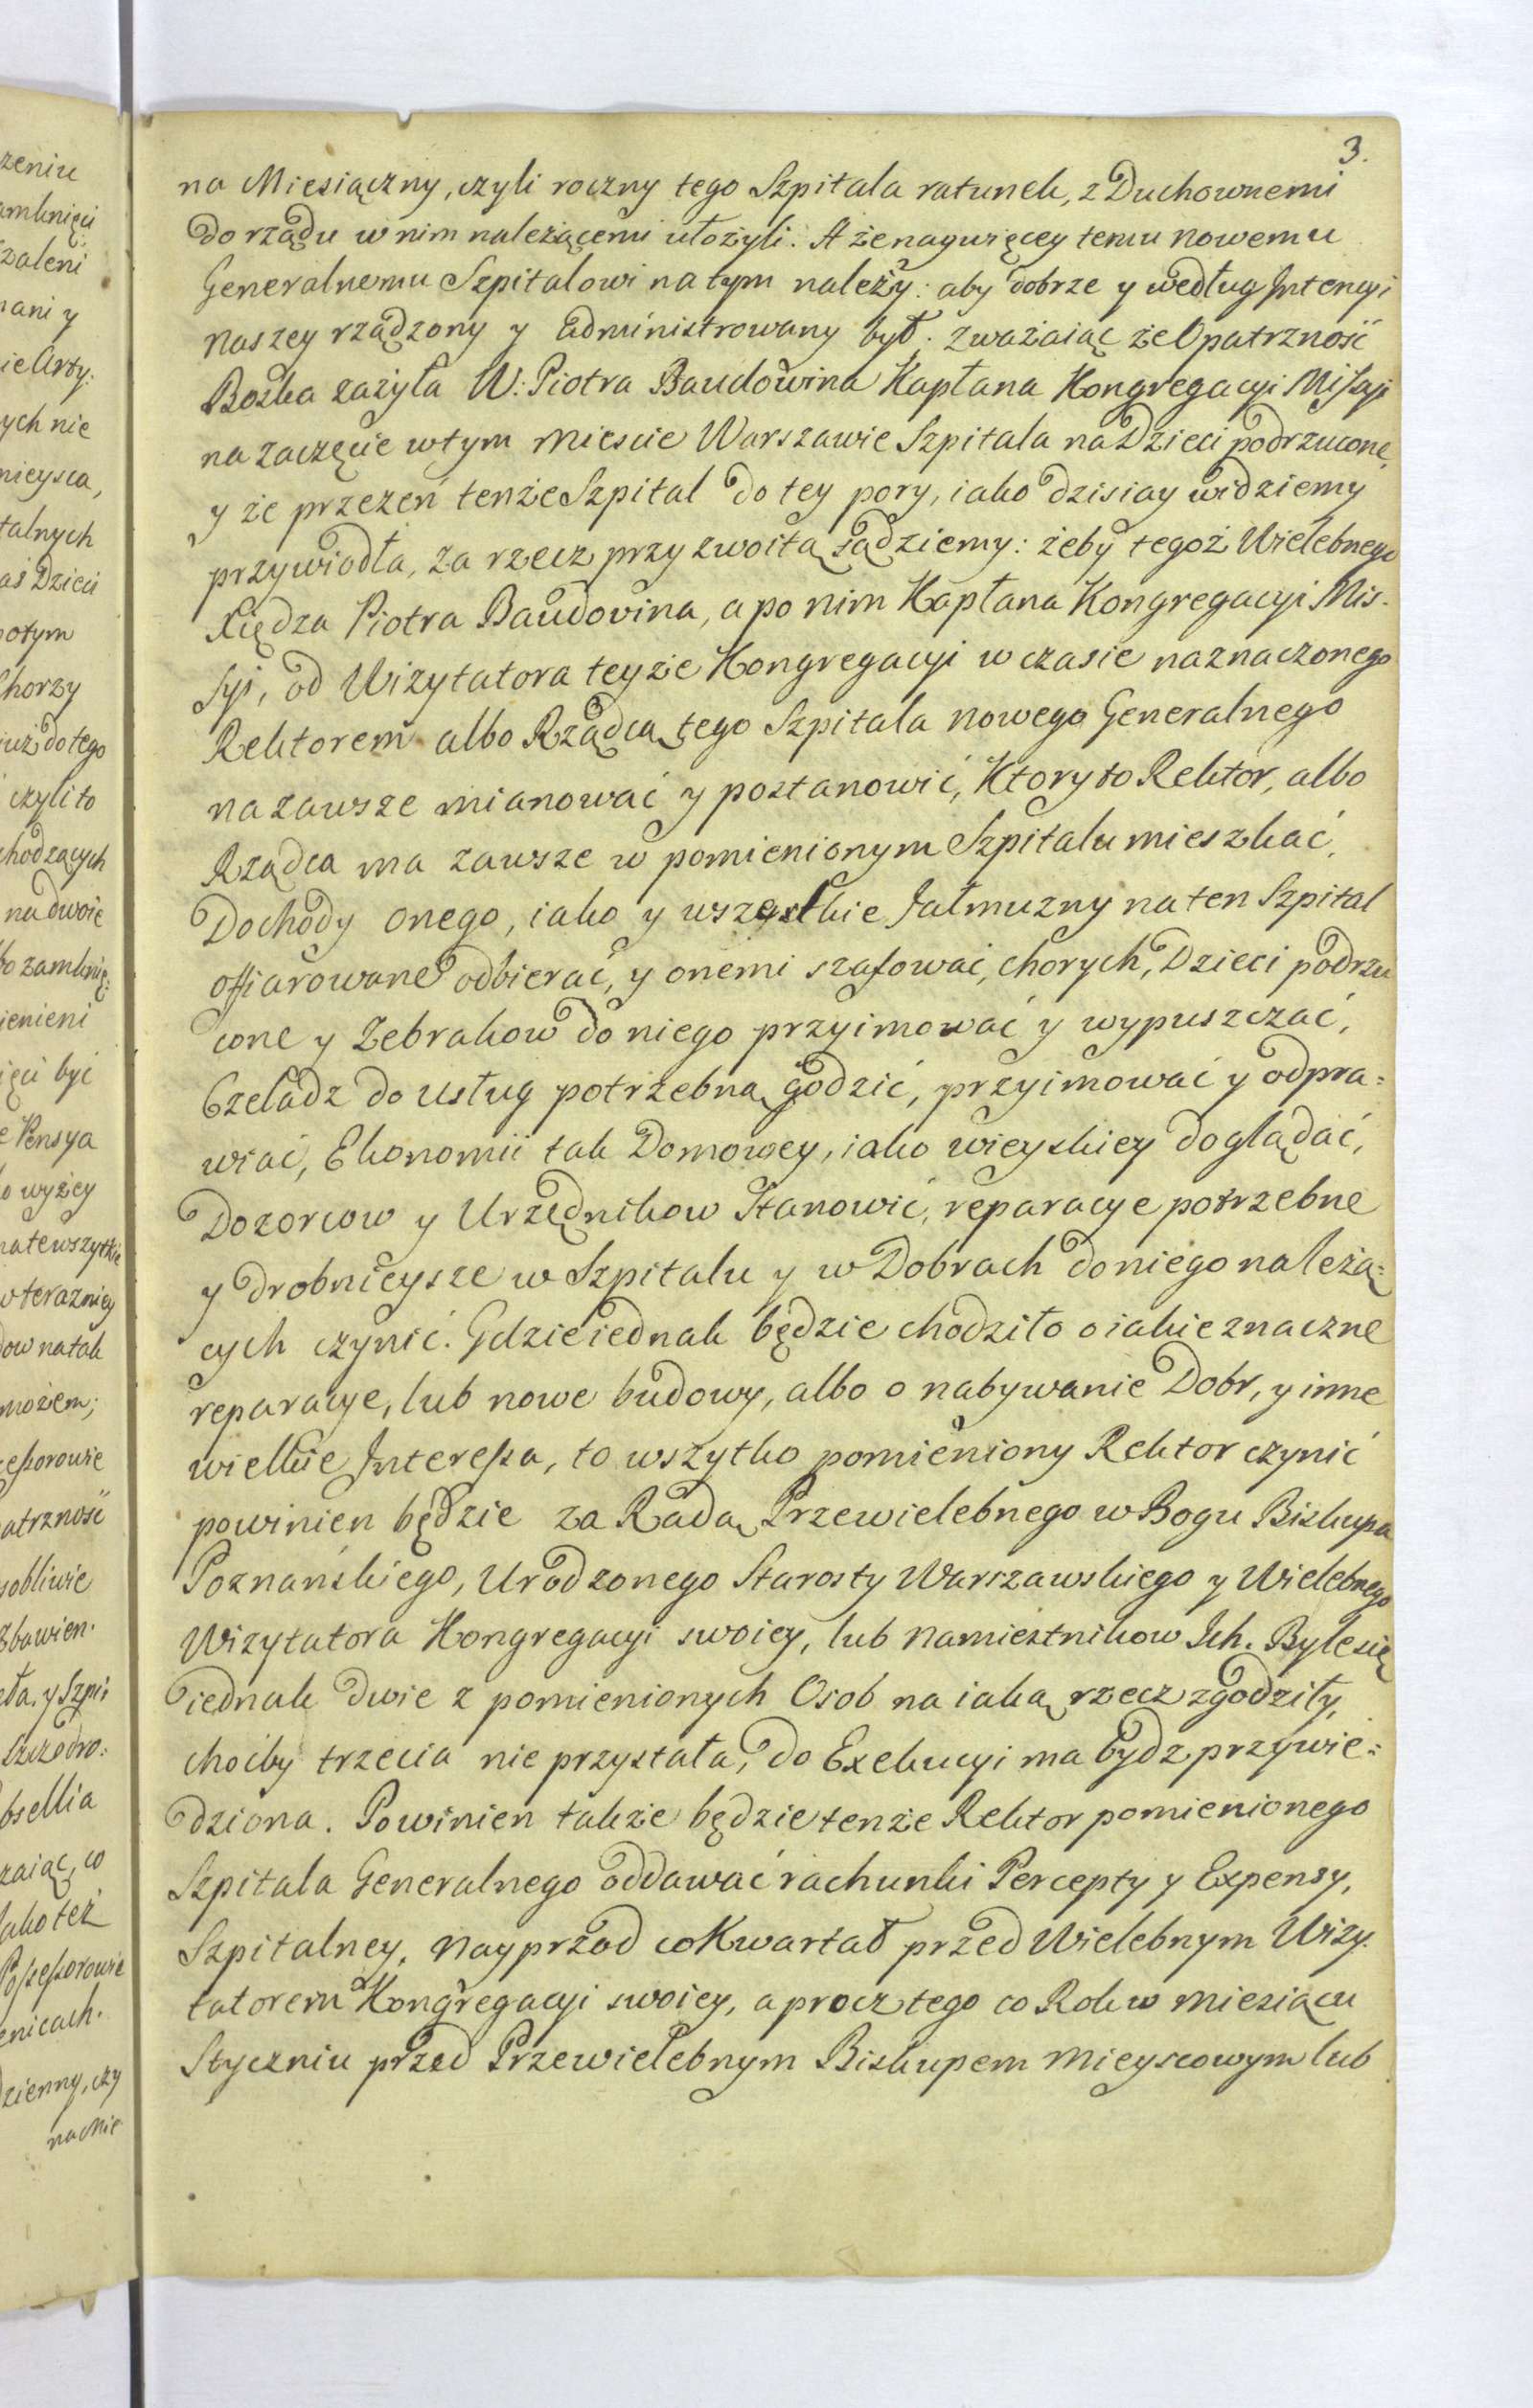 3.
na Miesiączny, czyli roczny tego Szpitala ratunek, z Duchownemi
do rządu w nim należącemi ułożyli. A że naywięcey temu nowemu
Generalnemu Szpitalowi na tym należy: aby dobrze y według Intencyi
naszey rządzony y administrowany był. zważaiąc że Opatrzność
Bozka zażyła W: Piotra Baudowina Kapłana Kongregacyi Missyi
na zaczęcie w tym Miescie Warszawie Szpitala na Dzieci podrzucone,
y że przezeń tenże Szpital do tey pory, iako dzisiay widziemy
przywiodła, za rzecz przyzwoitą sądziemy: żeby tegoż Wielebnego
Xiędza Piotra Baudovina, a po nim Kapłana Kongregacyi Mis-
syi, od Wizytatora teyże Kongregacyi w czasie naznaczonego
Rektorem albo Rządcą tego Szpitala nowego Generalnego
na zawsze mianować y postanowić, Ktory to Rektor, albo
Rządca ma zawsze w pomienionym Szpitalu mieszkać,
Dochody onego, iako y wszystkie Jałmuzny na ten Szpital
offiarowane odbierać, y onemi szafować, chorych, Dzieci podrzu
cone y Zebrakow do niego przyimować y wypuszczać,
Czeladz do usług potrzebną godzić, przyimować y odpra=
wiać, Ekonomii tak Domowey, iako wieyskiey doglądać,
Dozorcow y Urzędnikow stanowić, reparacye potrzebne
y drobnieysze w Szpitalu y w Dobrach do niego należą=
cych czynić. Gdzie iednak będzie chodziło o iakie znaczne
reparacye, lub nowe budowy, albo o nabywanie Dobr, y inne
wielkie Interessa, to wszytko pomieniony Rektor czynić
powinien będzie za Radą Przewielebnego w Bogu Biskupa
Poznańskiego, Urodzonego Starosty Warszawskiego y Wielebnego
Wizytatora Kongregacyi swoiey, lub Namiestnikow Ich. Byle się
iednak dwie z pomienionych Osob na iaką rzecz zgodziły,
choćby trzecia nie przystała, do Exekucyi ma bydz przywie=
dziona. Powinien także będzie tenże Rektor pomienionego
Szpitala Generalnego oddawać rachunki Percepty y Expensy,
Szpitalney, Nayprzod co Kwartał przed Wielebnym Wizy-
tatorem Kongregacyi swoiey, a procz tego co Rok w Miesiącu
Styczniu przed Przewielebnym Biskupem Mieyscowym lub